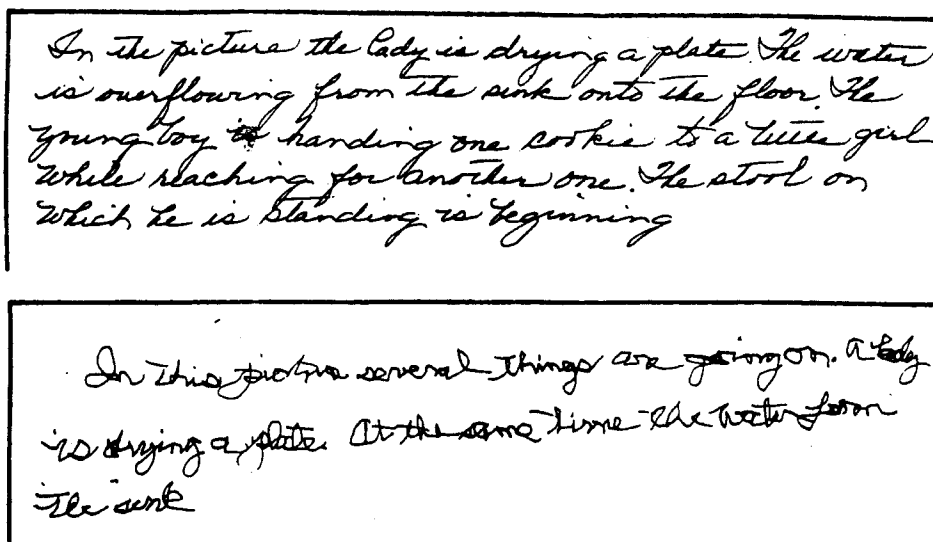 In the picture the lady is drying a plate. The water
is overflowing from the sink onto the floor. The
young boy is handing one cookie to a little girl
while reaching for another one. The stool on
which he is standing is beginning
In this picture several things are going on. A lady
is drying a plate. At the same time the water form
the sink